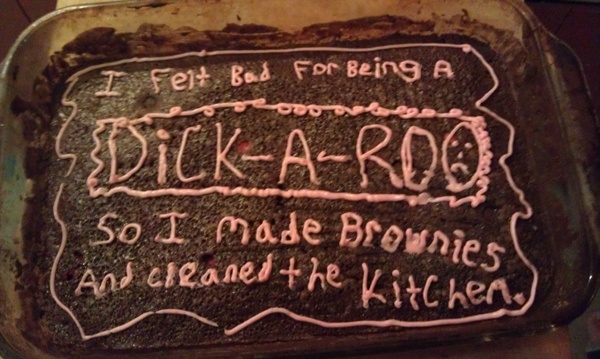 I Felt Bad For Being A
DiCK-A-ROO
So I made Brownies
And cleaned the KitChen.